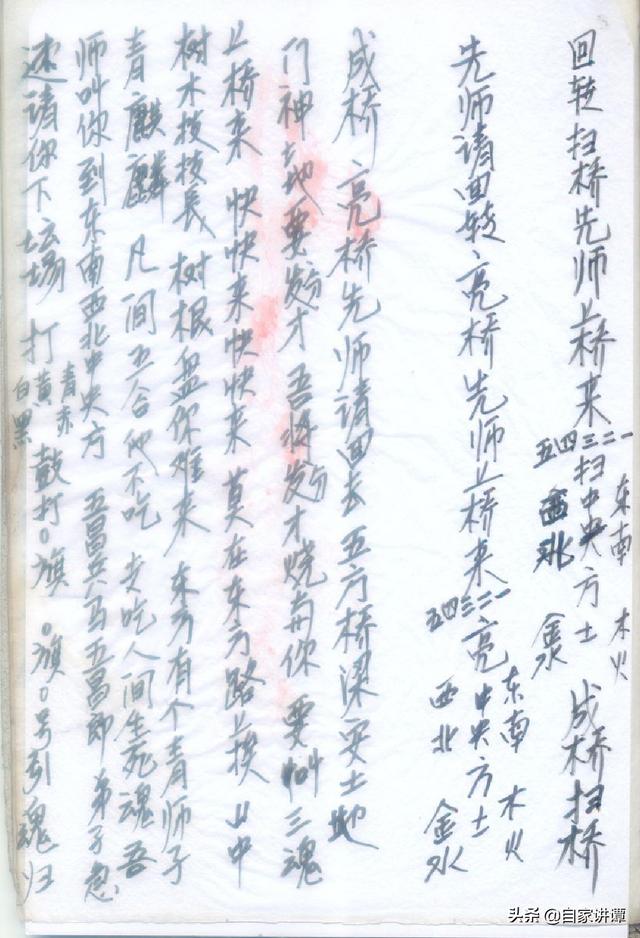 回转扫桥先师上桥来 一二三四五 扫 东南 中央 西北 方 木火 土 金水 成桥扫桥
先师请回转 亮桥先师上桥来 一二三四五 亮 东南 中央 西北 方 木火 土 金水
成桥 亮桥先师请回去 五方桥梁安土地
门神土地要 才 吾将 才烧与你 要叫三魂
上桥来 快快来快快来 莫在东方路上挨 山中
树木枝枝长 树根盘你难来 东方有个青师子
青麒麟 凡间五谷他不吃 专吃人间生死魂 吾
师叫你到东南西北中央方 五昌兵马五昌郎 弟子急
速请你下坛场 打 青赤黄白黑 鼓打0旗 0旗0号引魂归
头条 @自家讲谭